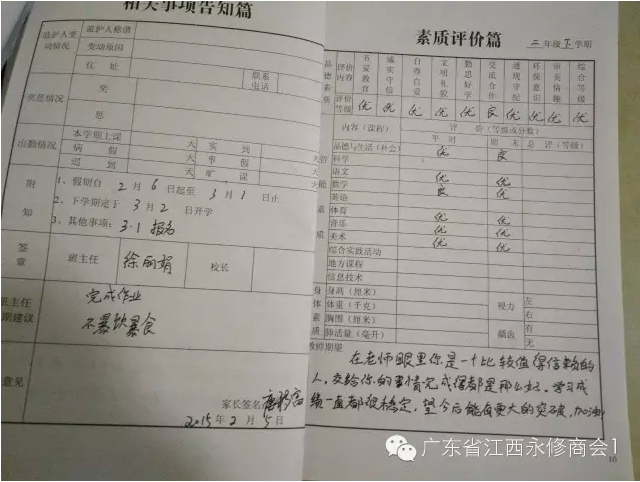 相关事项告知篇
监护人变动情况
监护人称谓
变动原因
住 址
联系电话
奖惩情况
奖
惩
出勤情况
本学期上课 天 实 到 天
病 假 天 事 假 天
迟 到 天 旷 课 天
附知
1、假期自 2 月 6 日起至 3 月 1 日止
2、下学期定于 3 月 2 日开学
3、其他事项: 3·1 报名
签章
班主任 徐丽娟 校长
班主任
期建议
完成作业
不暴饮暴食
意见
家长签名
2015年 2 月 5 日
素质评价篇
二年级下学期
品德素质
评价内容
爱教育
诚实守信
自尊自爱
文明礼貌
勤思好学
交流合作
遵规守纪
环保意识
审美情趣
综合等级
评价等级 优 优 优 优 优 良 优 优 优 优
内容(课程) 评 价(等级或分数)
平 时 期 末 总 评(等级)
品德与生活(社会) 优 良
科学
语文 优 优
数学 良 优
英语
体育 优 优
音乐 优 优
美术 优 优
综合实践活动
地方课程
信息技术
身体素质
身高(厘米)
体重(千克)
胸围(厘米)
肺活量(毫升)
视力 左 右
龋齿 有 无
教师期望
在老师眼里你是一个比较值得信赖的
人,交给你的事情完成得都是那么好,学习成
绩一直都很稳定,望今后能有更大的突破,加油
16
广东省江西永修商会1